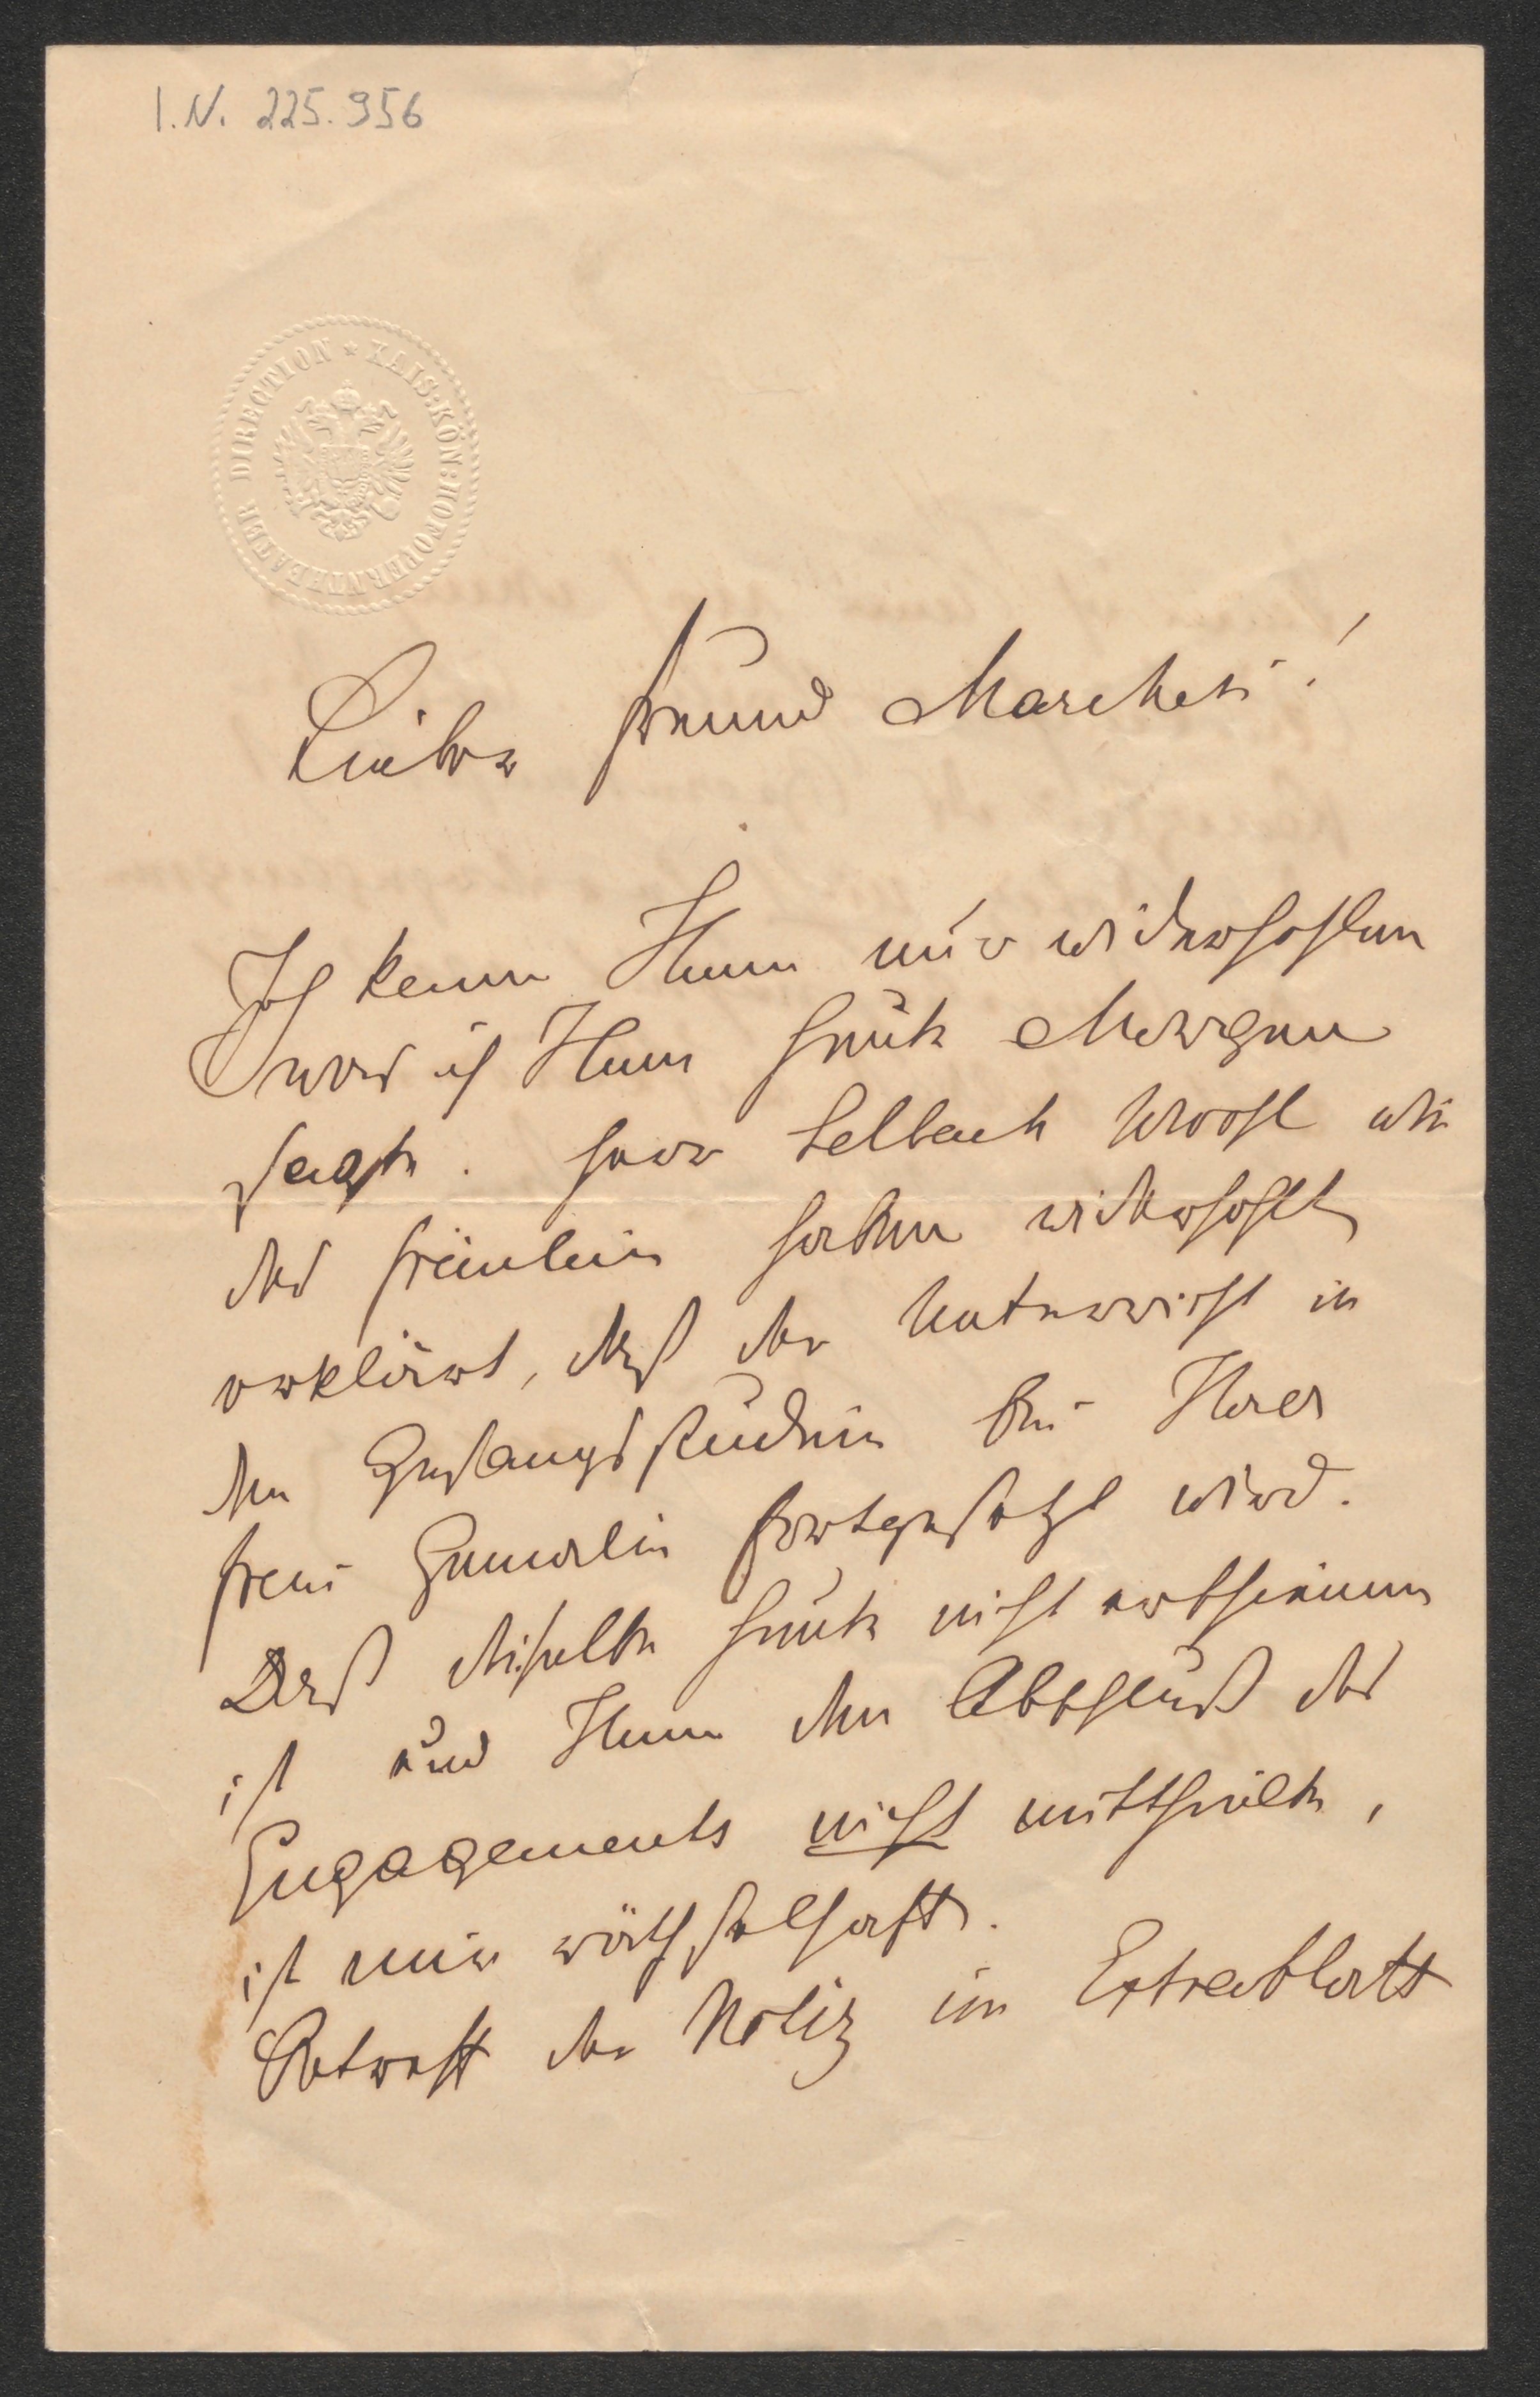 I.N. 225.956
KAIS: KÖN: HOFOPERNTHEATER DIRECTION *
Lieber Freund Marchesi!
Ich kann Ihnen nur widerhohlen
was ich Ihnen heute Morgen
sagte. Herr Selback wohl wie
das Fräulein haben widerhohlt
erklärt, daß der Unterricht in
den Gesangsstudien bei Ihrer
Frau Gemalin fortgesetzt wird.
Daß dieselbe heute nicht erschienen
ist und Ihnen den Abschluß des
Engagements nicht mittheilte,
ist mir räthselhaft.
Betreff der Notiz im Extrablatt